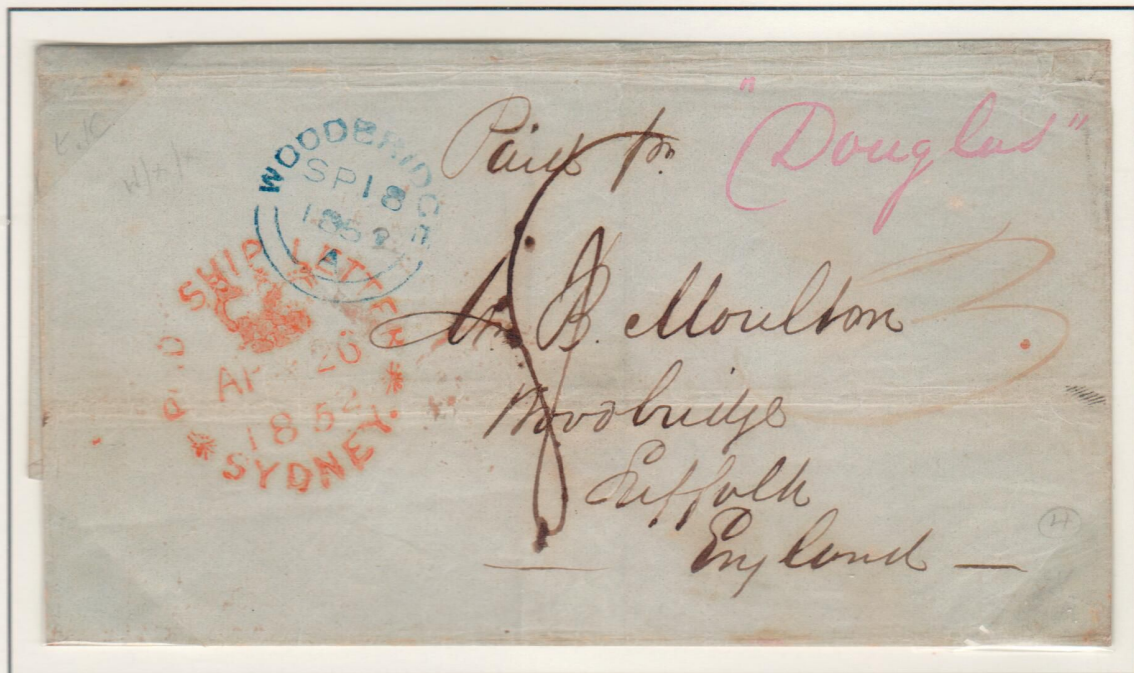 Paid pr. "Douglas"
WOODBRIDGE
SP 18
1852
A
8
3
PAID SHIP LETTER
AP 26
1852
SYDNEY
B. Moulton
Woodbridge
Suffolk
England —
4